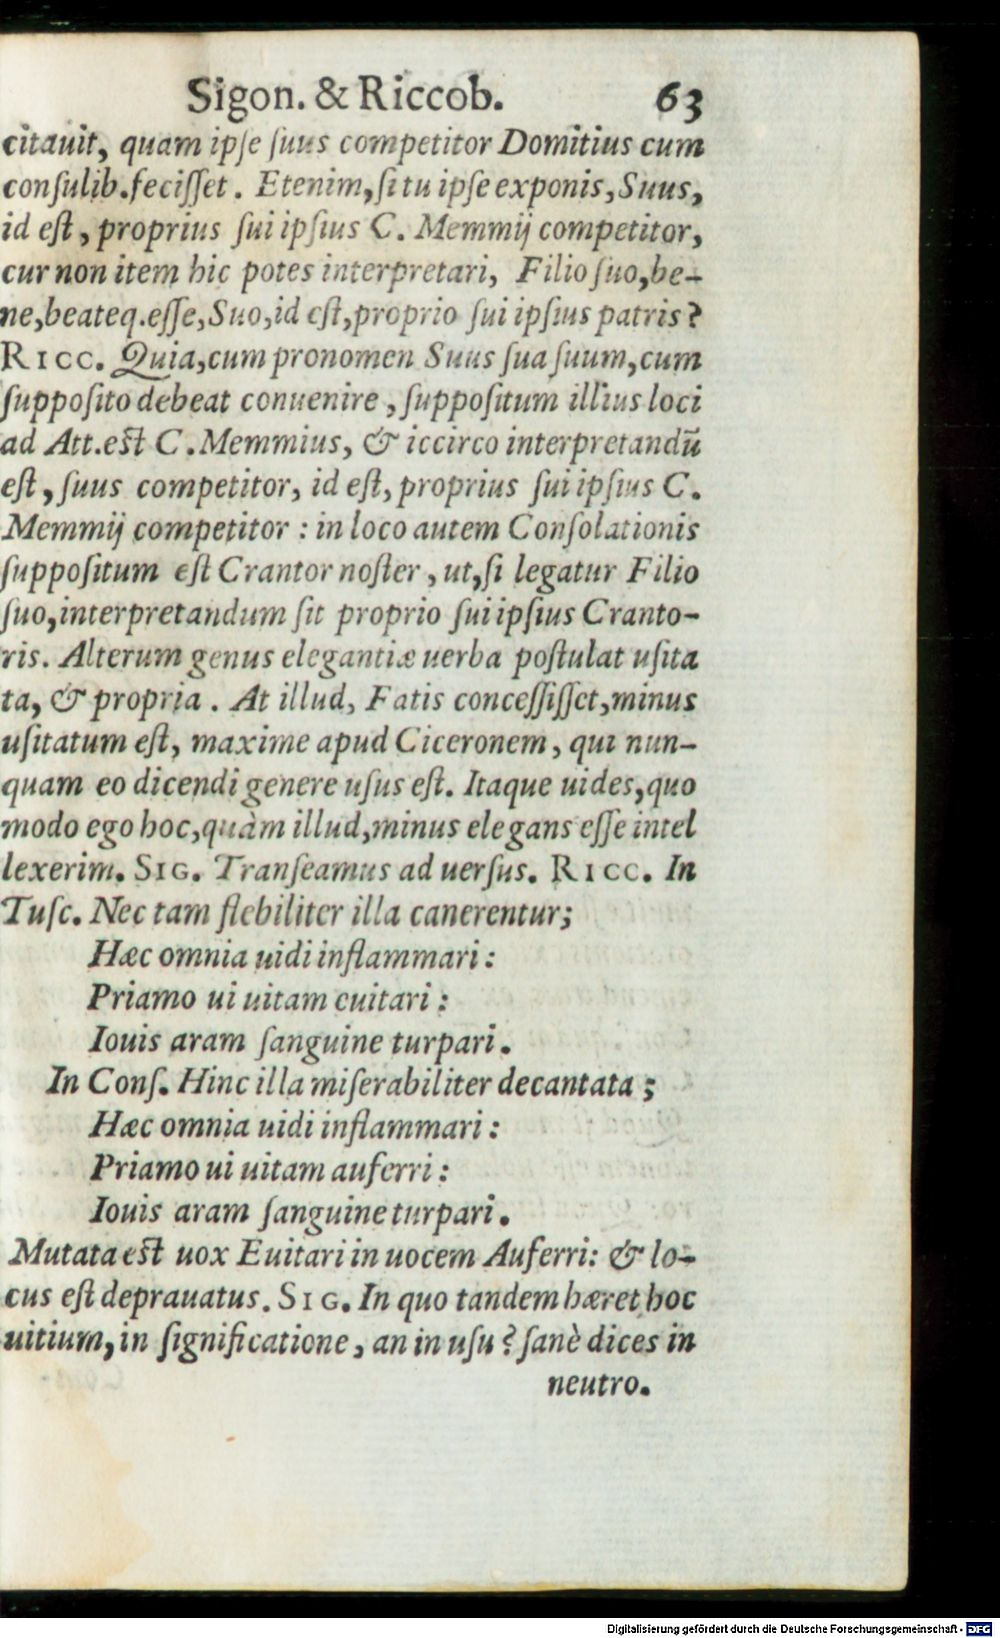 Sigon. & Riccob. 63
citauit, quam ipſe ſuus competitor Domitius cum
conſulib.feciſſet. Etenim,ſi tu ipſe exponis, Suus,
id eſt, proprius ſui ipſius C. Memmij competitor,
cur non item hic potes interpretari, Filio ſuo,be-
ne,beateq.eſſe,Suo,id eſt,proprio ſui ipſius patris?
RICC. Quia,cum pronomen Suus ſua ſuum,cum
ſuppoſito debeat conuenire, ſuppoſitum illius loci
ad Att.eſt C.Memmius, & iccirco interpretandũ
eſt, ſuus competitor, id eſt, proprius ſui ipſius C.
Memmij competitor : in loco autem Conſolationis
ſuppoſitum eſt Crantor noſter, ut,ſi legatur Filio
ſuo,interpretandum ſit proprio ſui ipſius Cranto-
ris. Alterum genus elegantiæ uerba poſtulat uſita
ta, & propria. At illud, Fatis conceſſiſſet,minus
uſitatum eſt, maxime apud Ciceronem, qui nun-
quam eo dicendi genere uſus eſt. Itaque uides,quo
modo ego hoc,quàm illud,minus elegans eſſe intel
lexerim. SIG. Tranſeamus ad uerſus. RICC. In
Tuſc. Nec tam flebiliter illa canerentur;
Hæc omnia uidi inflammari:
Priamo ui uitam euitari:
Iouis aram ſanguine turpari.
In Conſ. Hinc illa miſerabiliter decantata;
Hæc omnia uidi inflammari:
Priamo ui uitam auferri:
Iouis aram ſanguine turpari.
Mutata eſt uox Euitari in uocem Auferri: & lo-
cus eſt deprauatus. SIG. In quo tandem hæret hoc
uitium,in ſignificatione, an in uſu? ſanè dices in
neutro.
Digitalisierung gefördert durch die Deutsche Forschungsgemeinschaft - DFG